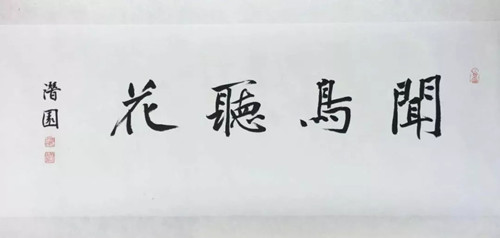 聞鳥聽花
潛園